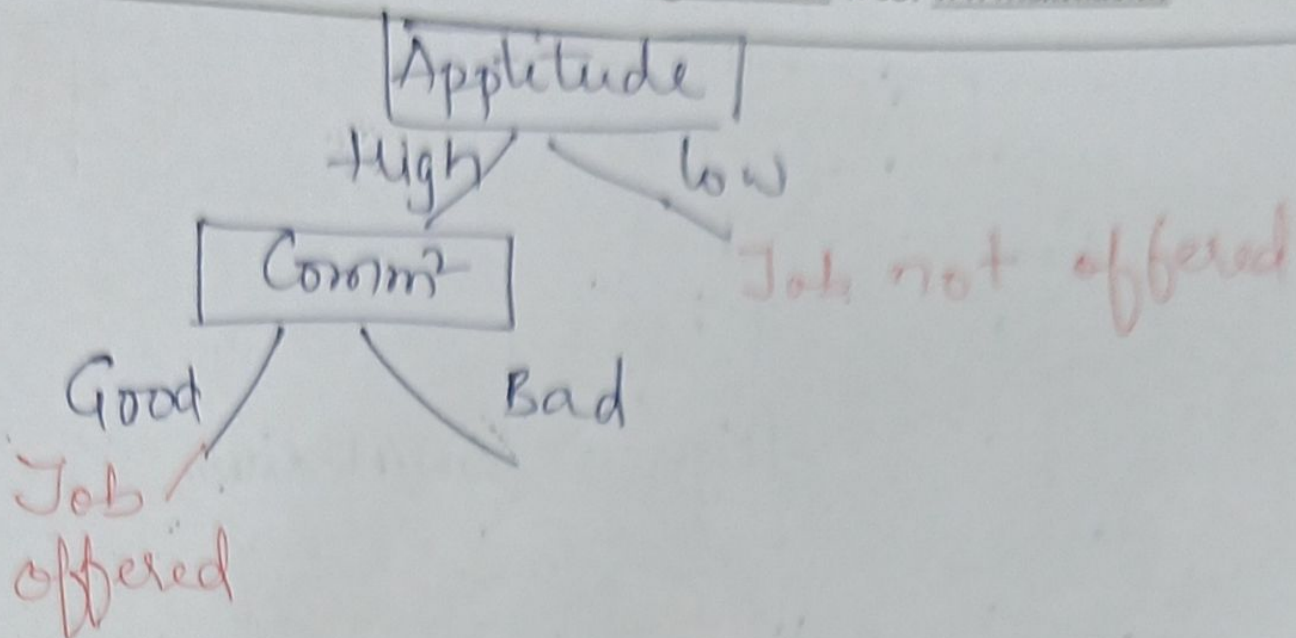 Applitude
High
low
Comm²
Job not offered
Good
Bad
Job
offered